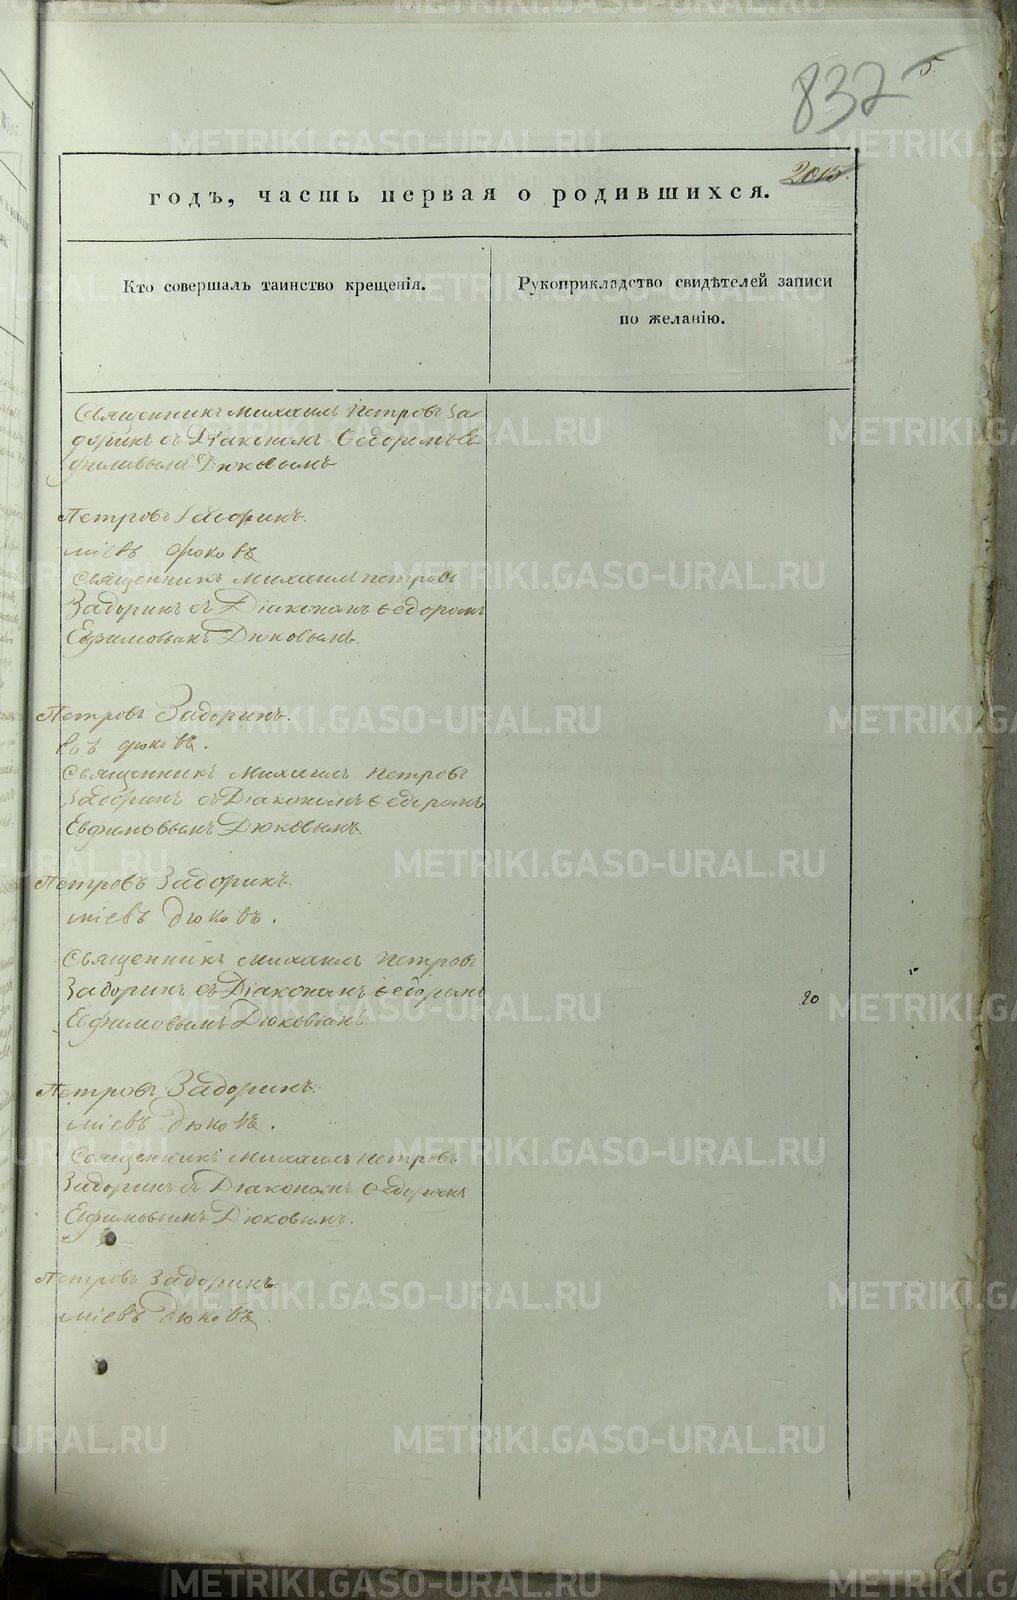 832
5.
2015.
годъ, часть первая о родившихся.
Кто совершалъ таинство крещенія.
Рукоприкладство свидѣтелей записи
по желанію.
Священникъ Михаилъ Петровъ За
доринъ съ Діакономъ Ѳедоромъ Ев
фимовымъ Дюковымъ
Петровъ Задоринъ.
міевъ Дюковъ
Священникъ Михаилъ Петровъ
Задоринъ съ Діакономъ Ѳедоромъ
Евфимовымъ Дюковымъ.
Петровъ Задоринъ.
евъ Дюковъ.
Священникъ Михаилъ Петровъ
Задоринъ съ Діакономъ Ѳедоромъ
Евфимовымъ Дюковымъ.
Петровъ Задоринъ.
міевъ Дюковъ.
Священникъ Михаилъ Петровъ
Задоринъ съ Діакономъ Ѳедоромъ
Евфимовымъ Дюковымъ.
20
Петровъ Задоринъ.
міевъ Дюковъ.
Священникъ Михаилъ Петровъ
Задоринъ съ Діакономъ Ѳедоромъ
Евфимовымъ Дюковымъ.
Петровъ Задоринъ
міевъ Дюковъ.
METRIKI.GASO-URAL.RU